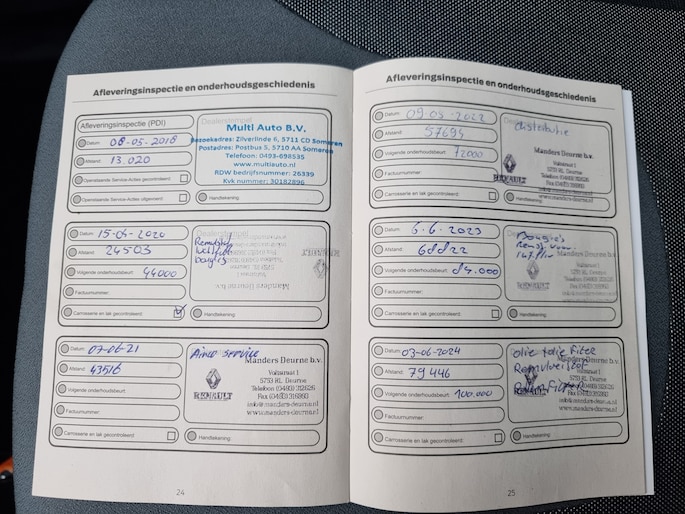 Afleveringsinspectie en onderhoudsgeschiedenis
Afleveringsinspectie (PDI)
Datum: 08-05-2018
Afstand: 13.020
Openstaande Service-Acties gecontroleerd:
Openstaande Service-Acties uitgevoerd:
Dealerstempel
Multi Auto B.V.
Bezoekadres: Zilverlinde 6, 5711 CD Someren
Postadres: Postbus 5, 5710 AA Someren
Telefoon: 0493-698535
www.multiauto.nl
RDW bedrijfsnummer: 26339
Kvk nummer: 30182896
Handtekening:
Datum: 15-05-2020
Afstand: 24503
Volgende onderhoudsbeurt: 44000
Factuurnummer:
Carrosserie en lak gecontroleerd:
Remvlst
luchtfilt
bougis
RENAULT
Manders Deurne b.v.
Handtekening:
Datum: 07-06-21
Afstand: 43516
Volgende onderhoudsbeurt:
Factuurnummer:
Carrosserie en lak gecontroleerd:
Airco service
Manders Deurne b.v.
Vultstraat 1
5753 RL Deurne
Telefoon (0493) 312626
RENAULT
Fax (0493) 316860
info@manders-deurne.nl
www.manders-deurne.nl
Handtekening:
24
Afleveringsinspectie en onderhoudsgeschiedenis
Datum: 09-05-2022
Afstand: 57694
Volgende onderhoudsbeurt: 72000
Factuurnummer:
Carrosserie en lak gecontroleerd:
distributie
Manders Deurne b.v.
5753 RL Deurne
RENAULT
Handtekening:
Datum: 6.6.2023
Afstand: 68822
Volgende onderhoudsbeurt: 84.000
Factuurnummer:
Carrosserie en lak gecontroleerd:
Bougie's
Manders Deurne b.v.
RENAULT
Handtekening:
Datum: 03-06-2024
Afstand: 79446
Volgende onderhoudsbeurt: 100.000
Factuurnummer:
Carrosserie en lak gecontroleerd:
olie + olie filter
Remvloeistof
RENAULT
www.manders-deurne.nl
Handtekening:
25